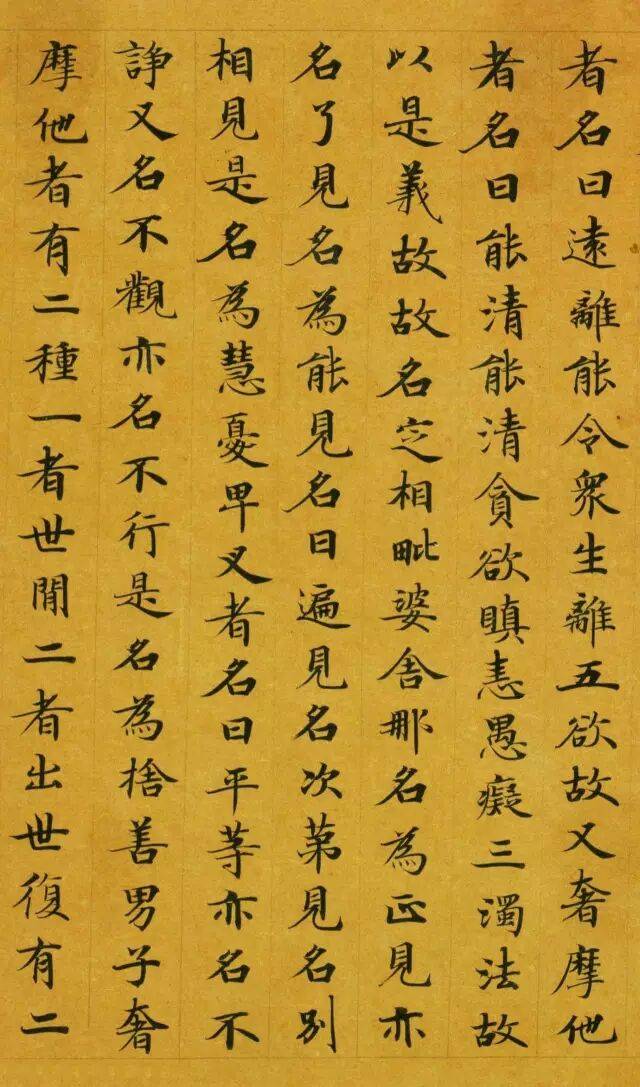 者名曰遠離能令衆生離五欲故又奢摩他
者名曰能清能清貪欲瞋恚愚癡三濁法故
以是義故故名定相毗婆舍那名為正見亦
名了見名為能見名曰遍見名次苐見名別
相見是名為慧憂畢叉者名曰平等亦名不
諍又名不觀亦名不行是名為捨善男子奢
摩他者有二種一者世間二者出世復有二